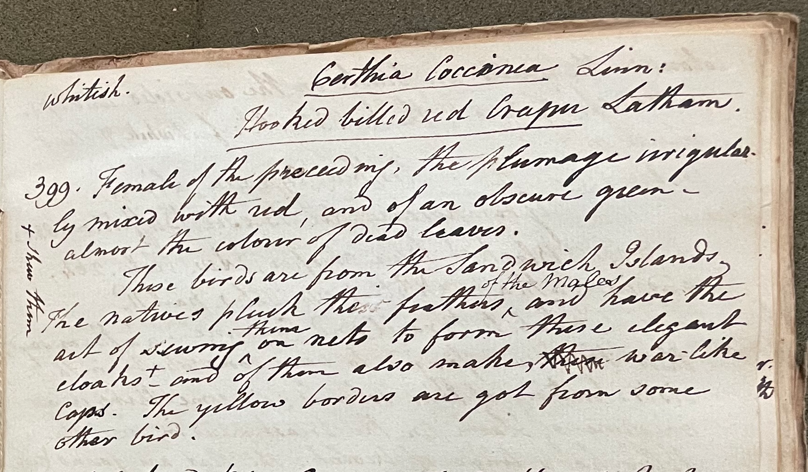 whitish.
Certhia Coccinea Linn:
Hooked billed red Creeper Latham.
399. Female of the preceeding, the plumage irrigular-
ly mixed with red, and of an obscure green -
almost the colour of dead leaves.
These birds are from the Sandwich Islands,
of the Males
The natives pluck the feathers, ^ and have the
them
art of sewing ^ on nets to form these elegant
cloaks + and of them also make, war-like
Caps. The yellow borders are got from some
other bird.
+ shew them